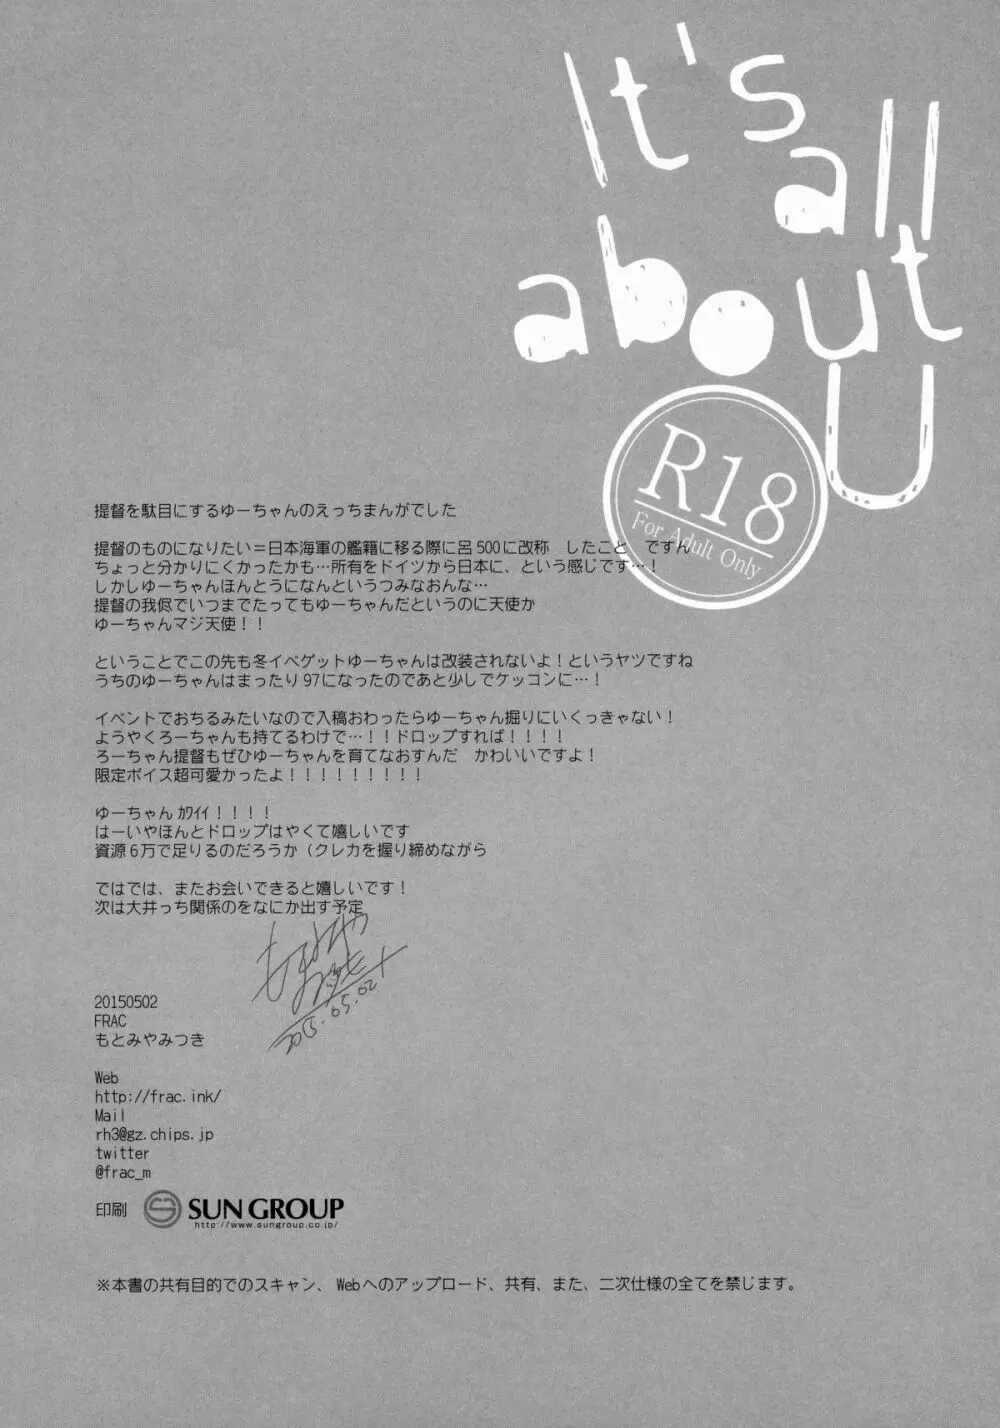 It's
all
about
U
R18
For Adult Only
提督を駄目にするゆーちゃんのえっちまんがでした
提督のものになりたい＝日本海軍の艦籍に移る際に呂500に改称　したこと　ですん
ちょっと分かりにくかったかも…所有をドイツから日本に、という感じです…！
しかしゆーちゃんほんとうになんというつみなおんな…
提督の我侭でいつまでたってもゆーちゃんだというのに天使か
ゆーちゃんマジ天使！！
ということでこの先も冬イベゲットゆーちゃんは改装されないよ！というヤツですね
うちのゆーちゃんはまったり97になったのであと少しでケッコンに…！
イベントでおちるみたいなので入稿おわったらゆーちゃん掘りにいくっきゃない！
ようやくろーちゃんも持てるわけで…！！ドロップすれば！！！！
ろーちゃん提督もぜひゆーちゃんを育てなおすんだ　かわいいですよ！
限定ボイス超可愛かったよ！！！！！！！！！
ゆーちゃん ｶﾜｲｲ！！！！
はーいやほんとドロップはやくて嬉しいです
資源6万で足りるのだろうか（クレカを握り締めながら
ではでは、またお会いできると嬉しいです！
次は大井っち関係のをなにか出す予定
2015.05.02
20150502
FRAC
もとみやみつき
Web
http://frac.ink/
Mail
rh3@gz.chips.jp
twitter
@frac_m
印刷 SUN GROUP
http://www.sungroup.co.jp/
※本書の共有目的でのスキャン、Webへのアップロード、共有、また、二次仕様の全てを禁じます。